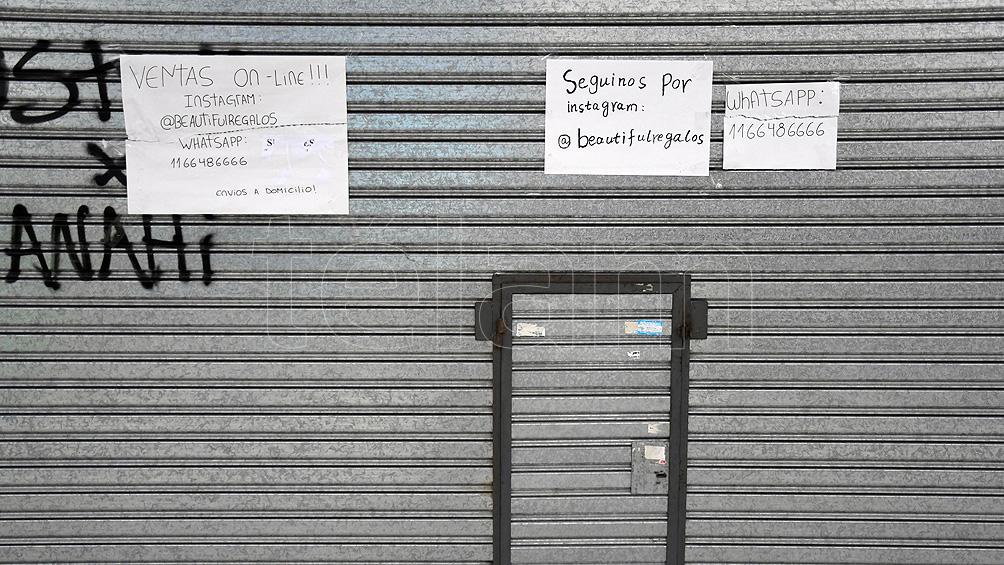 VENTAS ON-LINE!!!
INSTAGRAM:
@BEAUTIFULREGALOS
WHATSAPP:
1166486666
ENVIOS A DOMICILIO!
Seguinos Por
instagram:
@beautifulregalos
WHATSAPP:
1166486666
ANAHi
télam